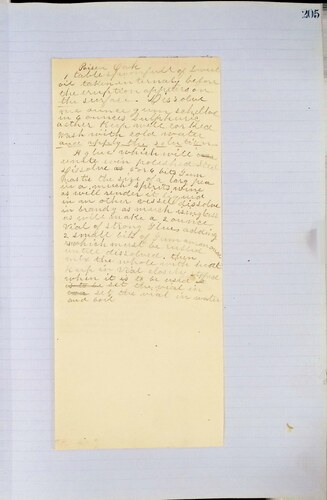 205
Poison Oak
1 table spoon full of Sweet
oil taken internaly before
the eruption appears on
the surface. Dissolve
one ounce gum shellac
in 6 ounces Sulphuric
aether Keep well corked
wash with cold water
and apply the solution
A glue which will
unite even polished steel
Dissolve 5 or 6 bits Gum
mastic the size of a large pea
in as much spirits wine
as will render it liquid
in an other vessel dissolve
in brandy as much isinglass
as will make a 2 ounce
vial of strong Glue adding
2 small bits of gum ammoniac
which must be rubed
until dissolved, then
mix the whole with heat
keep in vial closely stopped
when it is to be used
set the vial in
set the vial in water
and boil